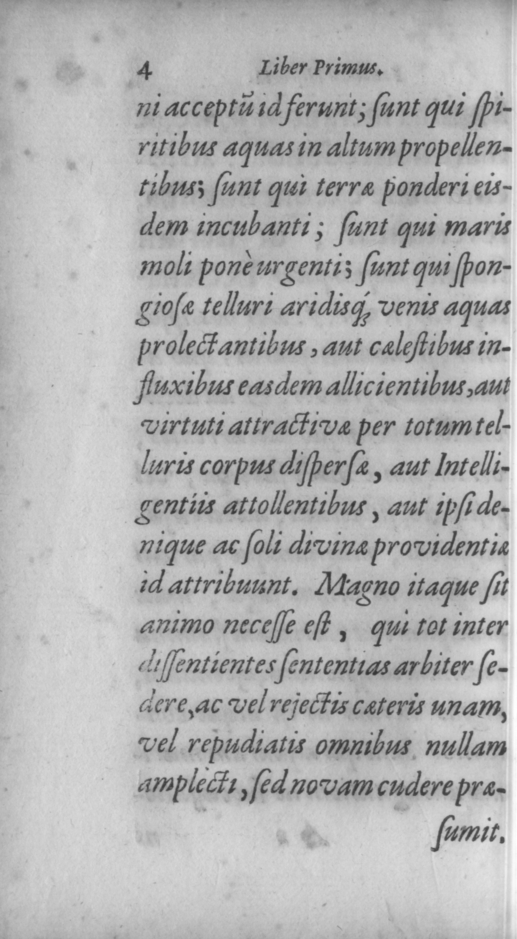 4 Liber Primus.
ni acceptũ id ferunt; ſunt qui ſpi-
ritibus aquas in altum propellen-
tibus; ſunt qui terræ ponderi eis-
dem incubanti; ſunt qui maris
moli ponè urgenti; ſunt qui ſpon-
gioſæ telluri aridisq́; venis aquas
prolectantibus, aut cæleſtibus in-
fluxibus easdem allicientibus, aut
virtuti attractivæ per totum tel-
luris corpus diſperſæ, aut Intelli-
gentiis attollentibus, aut ipſi de-
nique ac ſoli divinæ providentiæ
id attribuunt. Magno itaque ſit
animo neceſſe eſt, qui tot inter
diſſentientes ſententias arbiter ſe-
dere, ac vel rejectis cæteris unam,
vel repudiatis omnibus nullam
amplecti, ſed novam cudere præ-
ſumit.